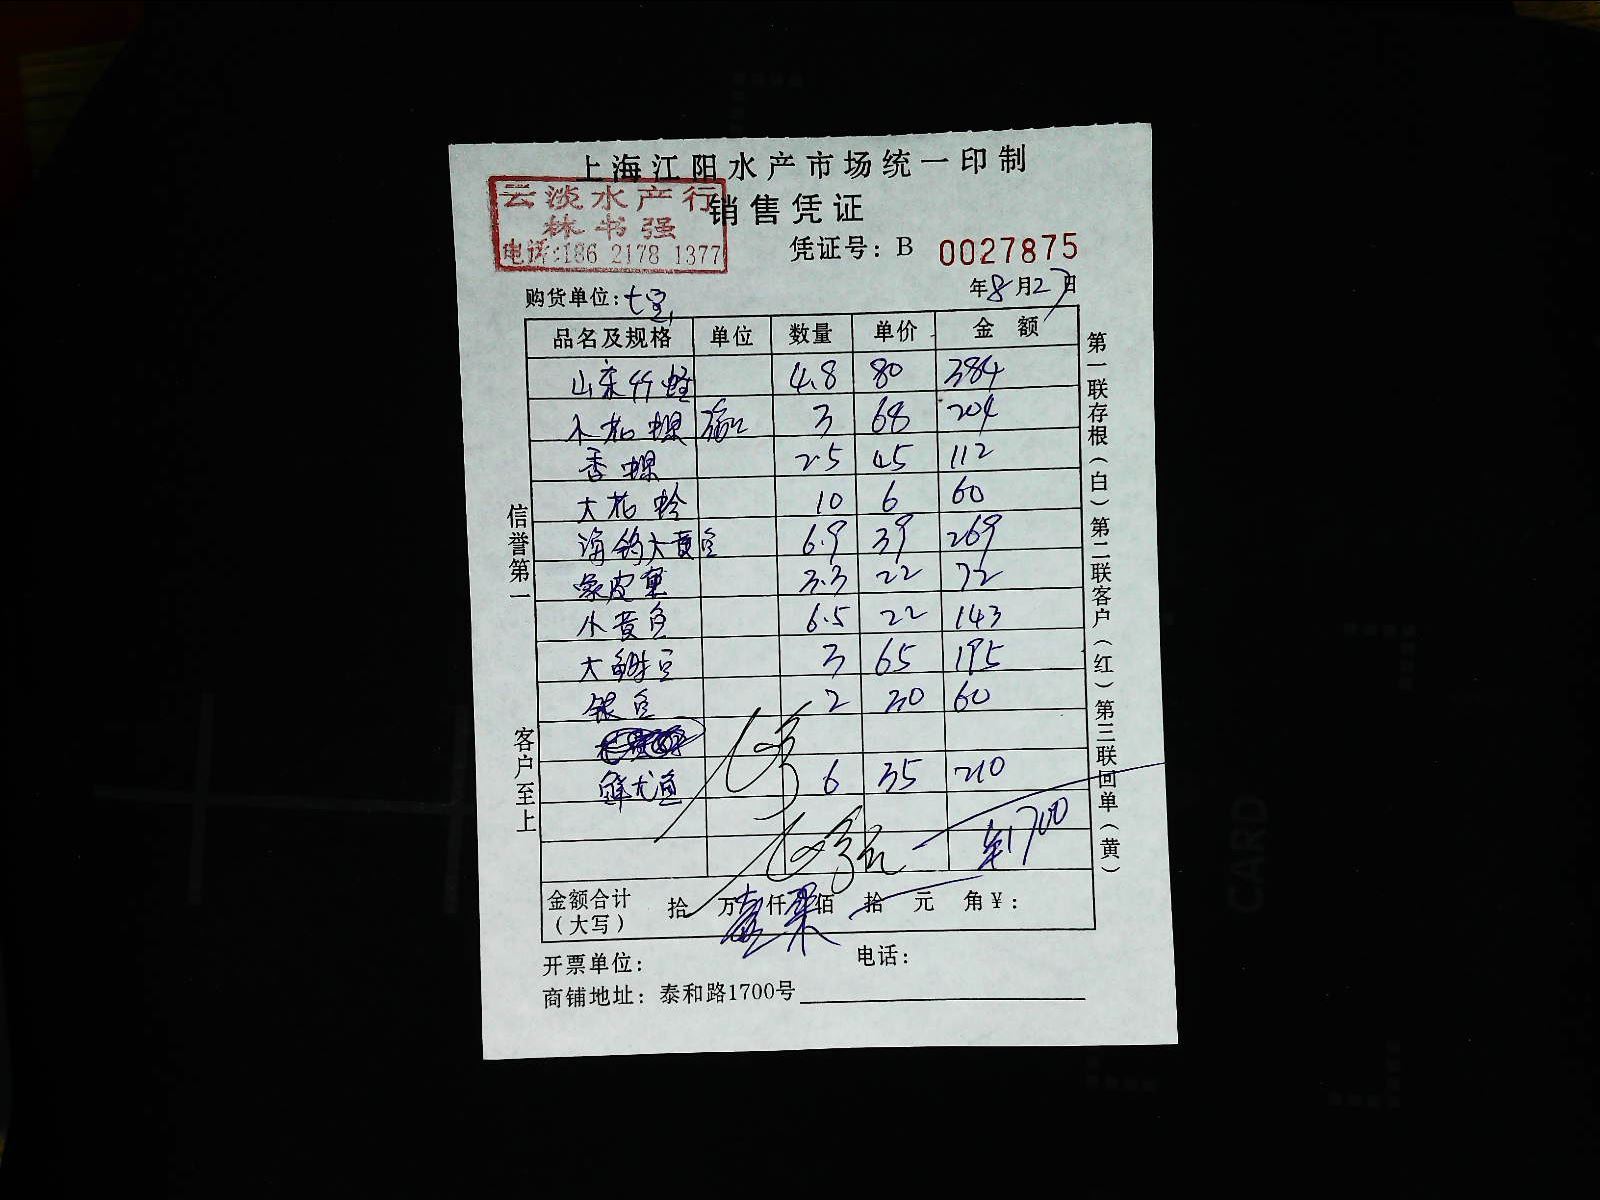 上海江阳水产市场统一印制
云淡水产行
林书强
电话:186 2178 1377
销售凭证
凭证号: B 0027875
购货单位:七宝
年8月27日
品名及规格 单位 数量 单价 金额
山东竹蛏 4.8 80 384
3 68 204
香螺 2.5 45 112
大花蛤 10 6 60
海钓大黄鱼 6.9 39 269
象皮 3.3 22 72
小黄鱼 6.5 22 143
大 3 65 195
银鱼 2 30 60
鲜尤鱼 6 35 210
1700
金额合计 拾 万 仟 佰 拾 元 角 ¥:
(大写)
开票单位:
电话:
商铺地址: 泰和路1700号
信誉第一
客户至上
第一联存根(白)第二联客户(红)第三联回单(黄)
CARD